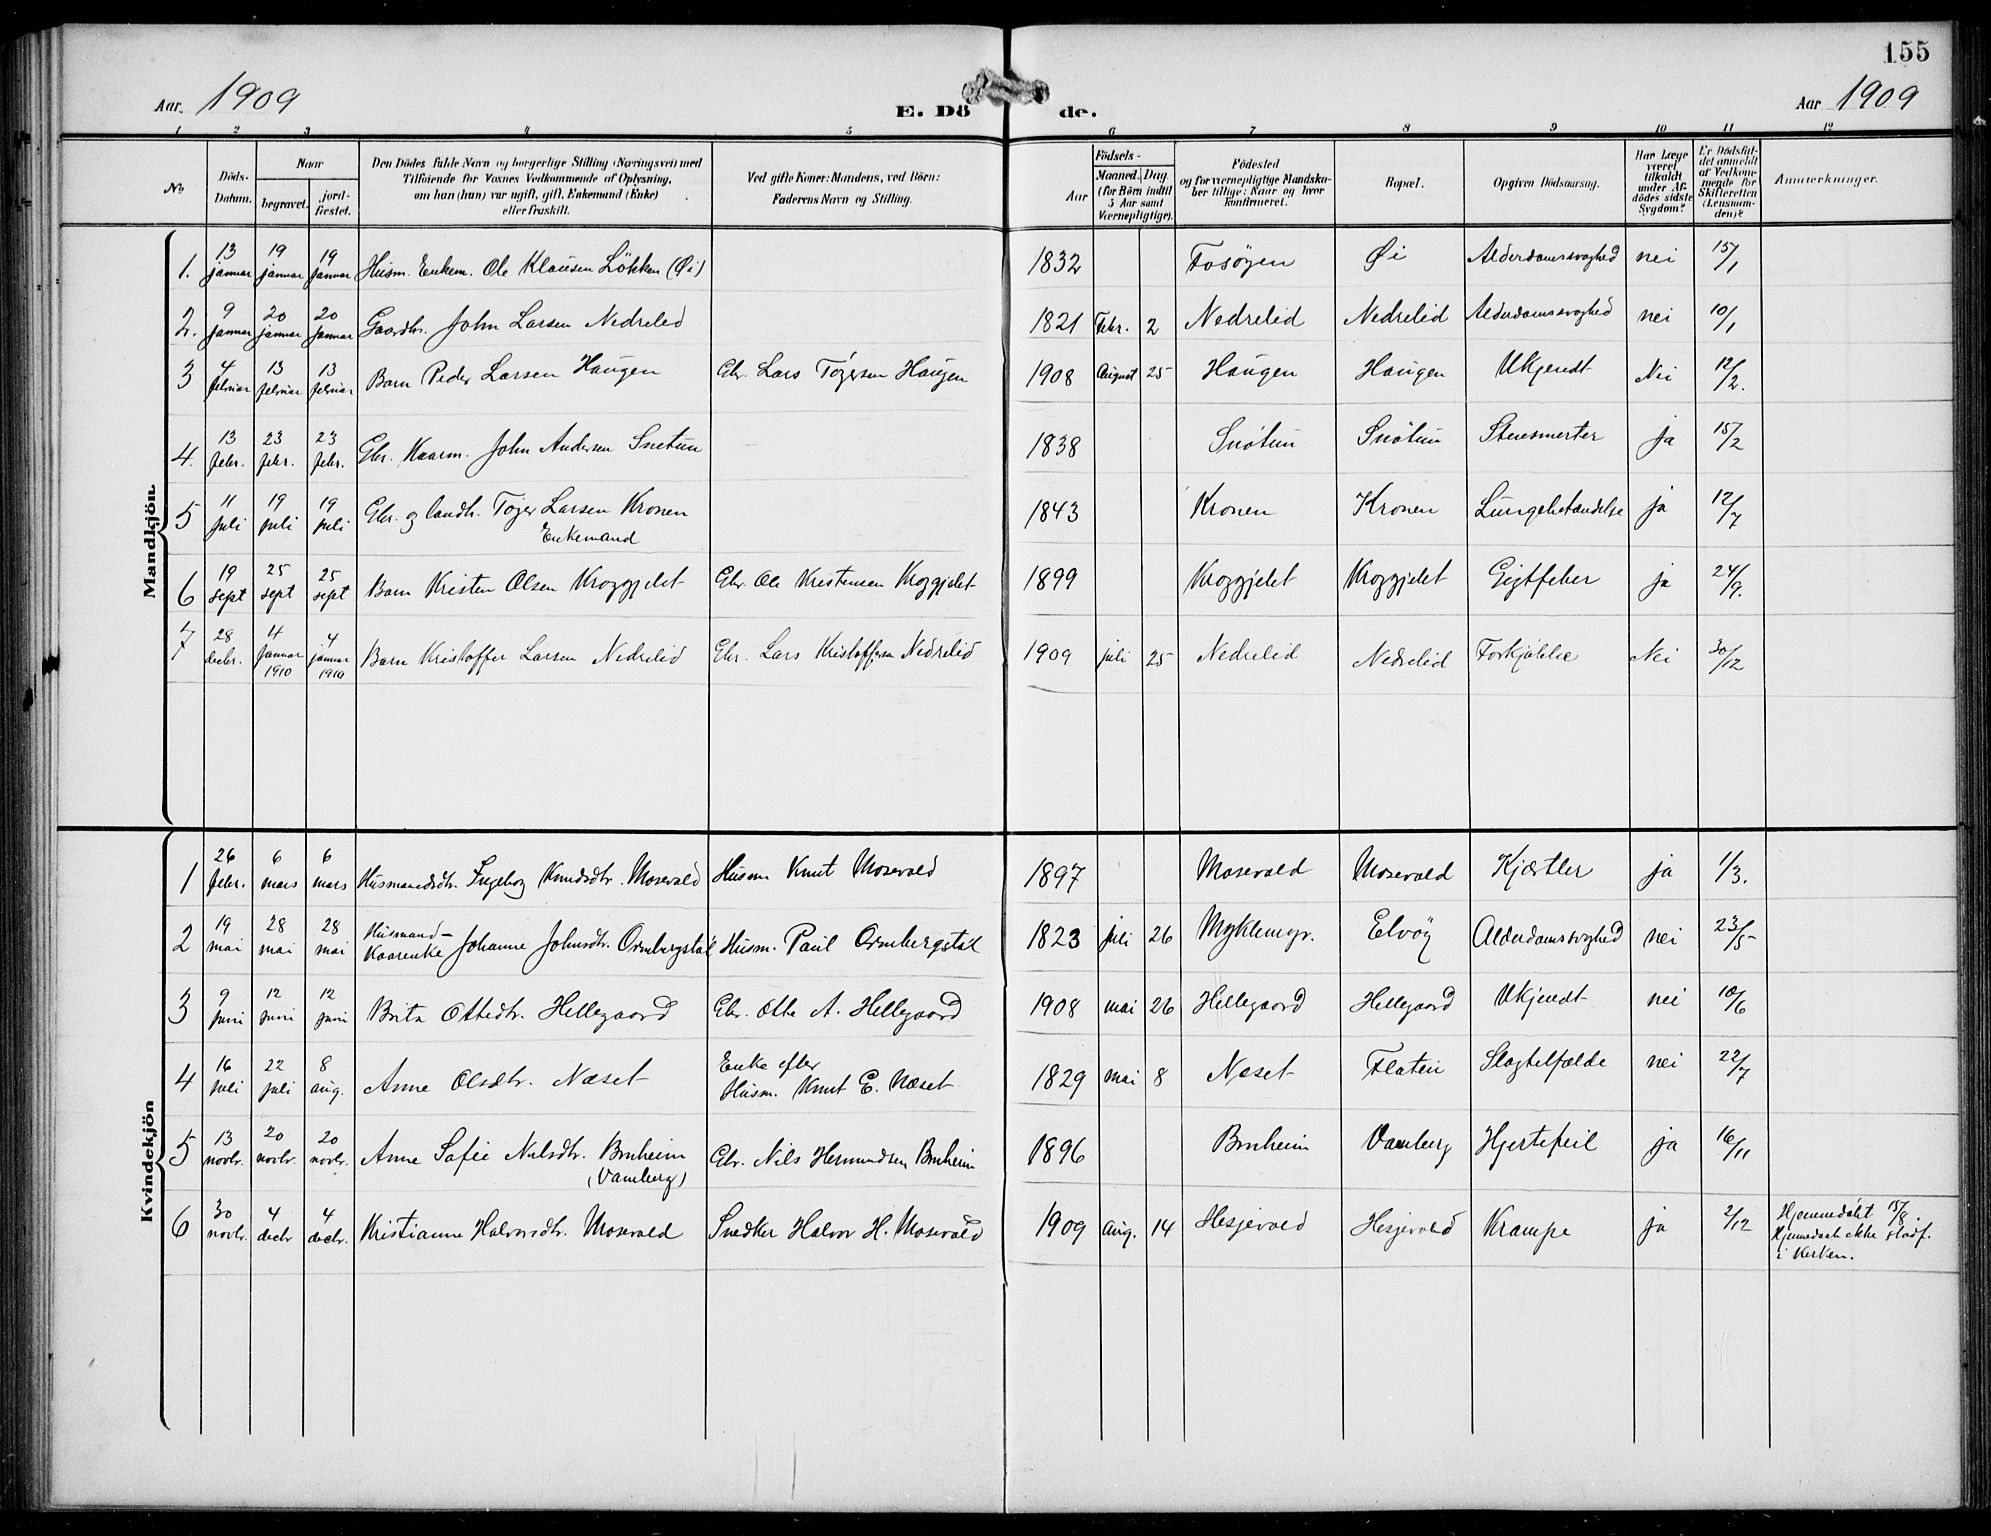 155
Aar. 1909
E. Dö de.
Aar 1909
1 2 3 4 5 6 7 8 9 10 11 12
No
Döds-Datum.
Naar
begravet.
jord-fæstet.
Den Dödes fulde Navn og borgerlige Stilling (Næringsvei) med
Tilföiende for Voxnes Vedkommende af Oplysning,
om han (hun) var ugift, gift, Enkemand (Enke)
eller fraskilt.
Ved gifte Koner: Mandens, ved Börn:
Faderens Navn og Stilling.
Födsels-
Aar
Maaned. Dag.
(for Börn indtil
5 Aar samt
Værnepligtige).
Födested
og for værnepligtige Mandska-
ber tillige: Naar og hvor
konfirmeret.
Bopæl.
Opgiven Dödsaarsag.
Har Læge
været
tilkaldt
under Af-
dödes sidste
Sygdom?
Er Dödsfal-
det anmeldt
af Vedkom-
mende for
Skifteretten
(Lensman-
den)?
Anmærkninger.
Mandkjön.
1. 13 januar 19 januar 19 januar Husm. Enkem. Ole Klausen Lökken (Øi) 1832 Fosöyen Øi Alderdomssvaghed nei 15/1
2. 9 januar 20 januar 20 januar Gaardbr. John Larsen Nedrelid 1821 Febr. 2 Nedrelid Nedrelid Alderdomssvaghed nei 10/1
3 4 februar 13 februar 13 februar Barn Peder Larsen Haugen Gbr. Lars Tøgersen Haugen 1908 August 25 Haugen Haugen Ukjendt Nei 12/2.
4. 13 febr. 23 febr. 23 febr. Gbr. Kaarm. John Andersen Snetun 1838 Snötun Snötun Stensmerter Ja 15/2
5 11 juli 19 juli 19 juli Gbr. og landh. Tøger Larsen Kronen
Enkemand 1843 Kronen Kronen Lungebetændelse ja 12/7
6 19 sept 25 sept 25 sept Barn Kristen Olsen Kroggjelet Gbr. Ole Kristensen Kroggjelet 1899 Kroggjelet Kroggjelet Gigtfeber ja 24/9.
7 28 decbr. 4 januar 1910 4 januar 1910 Barn Kristoffer Larsen Nedrelid Gbr. Lars Kristoffersen Nedrelid 1909 juli 25 Nedrelid Nedrelid Forkjölelse Nei 30/12
Kvindekjön
1 26 febr. 6 mars 6 mars Husmandsdtr. Ingeborg Knudsdtr. Mosevold Husm Knut Mosevold 1897 Mosevold Mosevold Kjertler ja 1/3.
2 19 mai 28 mai 28 mai Husmand-
Kaarenke Johanne Johnsdtr. Ormbergstøl Husm. Paul Ormbergstøl 1823 juli 26 Myklemyr. Elvöy Alderdomssvaghed nei 23/5
3 9 juni 12 juni 12 juni Brita Ottedtr. Hellegaard Gbr. Otte A. Hellegaard 1908 mai 26 Hellegaard Hellegaard Ukjendt nei 10/6
4 16 juli 22 juli 8 aug. Anne Olsdtr. Næset Enke efter
Husm. Knut E. Næset 1829 mai 8 Næset Flaten Slagtelfælde nei 22/7
5 13 novbr. 20 novbr. 20 novbr. Anne Sofie Nilsdtr. Bruheim
(Vamberg) Gbr. Nils Hermundsen Bruheim 1896 Bruheim Vamberg Hjertefeil ja 16/11
6 30 novbr. 4 decbr 4 decbr. Kristianne Halvorsdtr. Mosevold Snedker Halvor H. Mosevold 1909 Aug. 14 Hesjevold Hesjevold Krampe ja 2/12 Hjemmedöbt 15/8.
Hjemmedaab ikke stadf.
i Kirken.